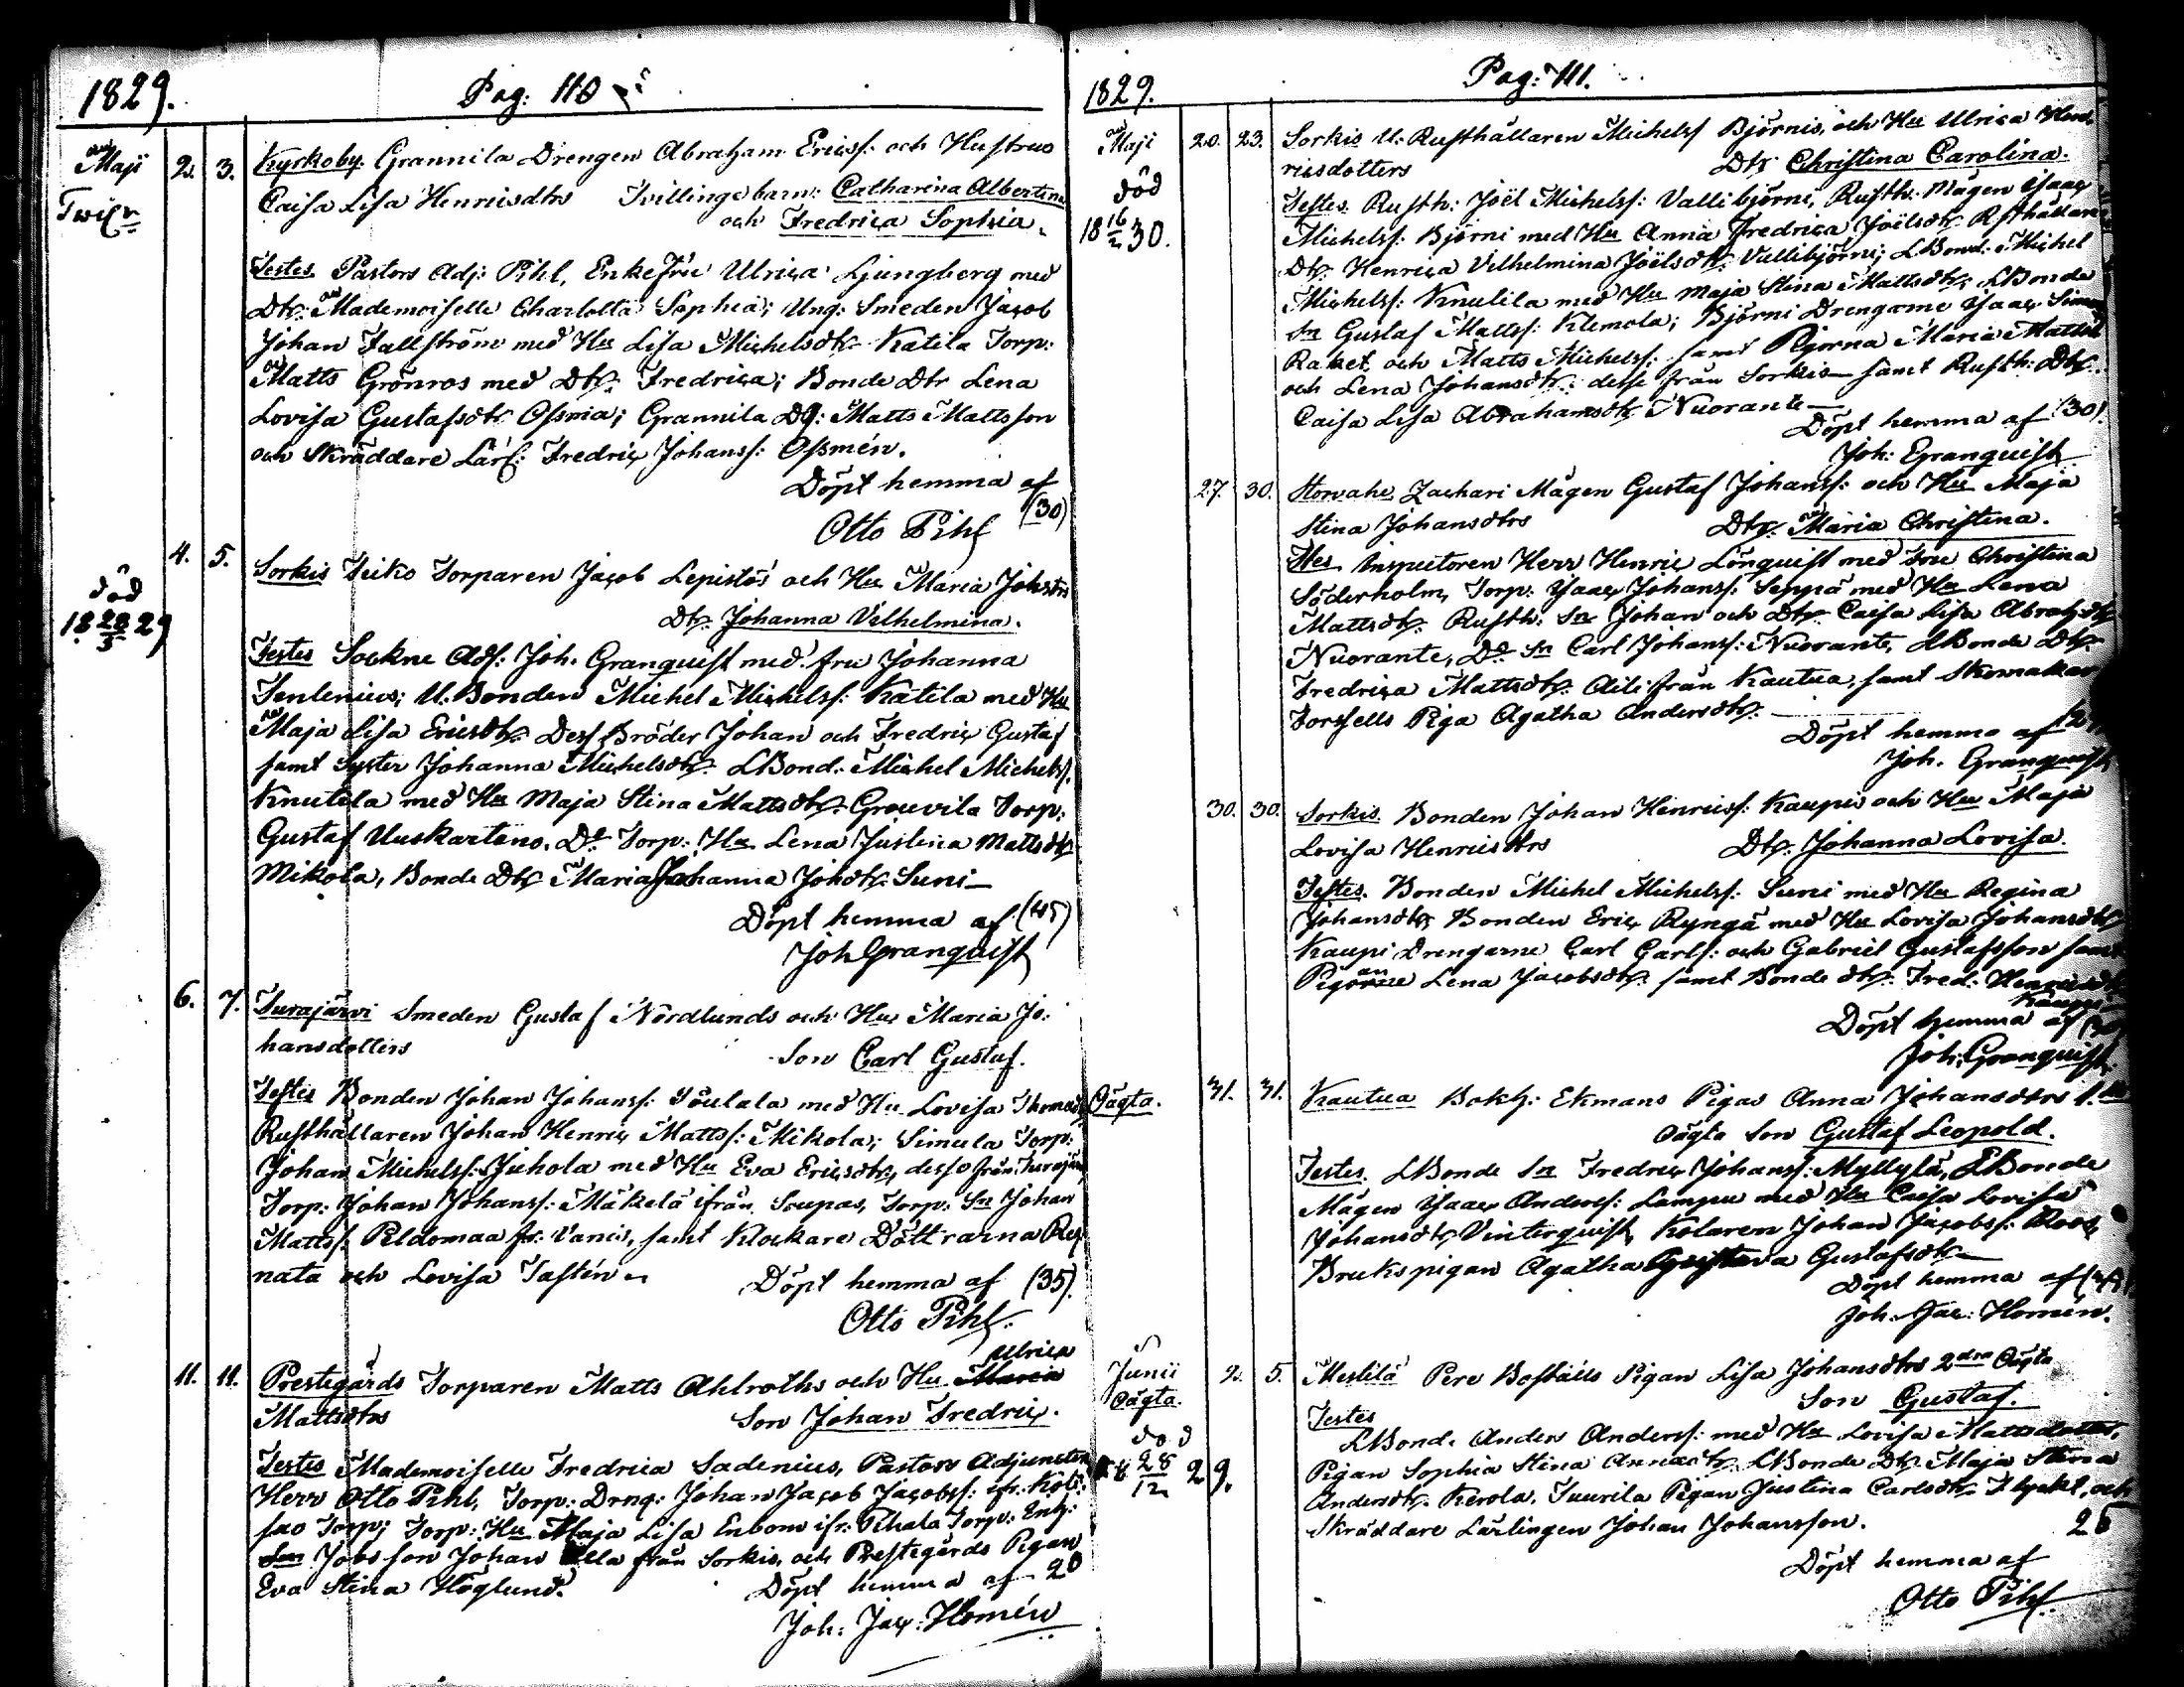 1829.
Pag: 110
Maji 2. 3. Kyrkoby Grannila Drengen Abraham Ericss: och Hustrus
Caisa Lisa Henricsdtrs Tvillingebarn: Catharina Albertina
och Fredrica Sophia.
Testes Pastors Adj: Pihl, Enkefru Ulrica Ljungberg med
Dtr: Mademoiselle Charlotta Sophia; Ung: Smeden Jacob
Johan Fallström med Hu Lisa Michelsdtr Katila Torp:
Matts Grönros med Dtr: Fredrica; Bonde Dtr Lena
Lovisa Gustafsdtr Ossma; Grannila Dg: Matts Mattsson
och Skräddare Lärl: Fredric Johanss: Ossmén.
Döpt hemma af
Otto Pihl (30)
4. 5. Sorkis Teiko Torparen Jacob Lepistös och Hu Maria Johsdtrs
död
18 28/5 29
Dtr. Johanna Vilhelmina.
Testes Sockne Adj: Joh. Granquist med fru Johanna
Tenlenius; U. Bonden Michel Michelss: Katila med Hu
Maja Lisa Ericsdtr Dess Bröder Johan och Fredric Gustaf
samt Syster Johanna Michelsdtr. LBond: Michel Michelss.
Knutila med Hu Maja Stina Mattsdtr. Grouvila Torp:
Gustaf Uuskartano. Do Torp: Hu Lena Justina Mattsdtr
Mikola, Bonde Dtr Maria Johanna Johdtr Suni
Döpt hemma af (45)
Joh Granquist
6. 7. Turajärvi Smeden Gustaf Nordlunds och Hus Maria Jo:
hansdotters Son Carl Gustaf.
Testes Bonden Johan Johanss: Söulala med Hu Lovisa Thomasd
Rusthållaren Johan Henric Mattss: Mikola; Simula Torp:
Johan Michelss: Juhola med Hu Eva Ericsdtr, desse från Turajärvi
Torp: Johan Johanss: Mäkelä ifrån Soupas, Torp: Sn Johan
Mattss: Peldomaa fr: Vanis, samt Klockare Döttrarna Re
nata och Lovisa Tastén Döpt hemma af (35).
Otto Pihl.
11. 11. Prestegårds Torparen Matts Ahlroths och Hu Ulrica
Mattsdtrs Son Johan Fredric.
Testes Mademoiselle Fredrica Sadenius, Pastors Adjuncten
Herr Otto Pihl, Torp: Drng: Johan Jacob Jacobss: ifr. Köli:
suo Torp; Torp: Hu Maja Lisa Enbom ifr: Pihala Torp: Enk:
Jobs son Johan Ella från Sorkis, och Prestegårds Pigan
Eva Stina Höglund. Döpt hemma af 20
Joh: Jac: Homén
1829.
Pag: 111.
Maji 20. 23. Sorkis U. Rusthållaren Michelss Björnis, och Hu Ulrica Hen
död
18 16/2 30.
ricsdotters Dtr Christina Carolina.
Testes. Rusth: Joël Michelss: Vallibjörni, Rusth: Mågen Isaac
Michelss: Björni med Hu Anna Fredrica Joëlsdtr. Rsthållare
Dtr. Henrica Vilhelmina Joëlsdtr. Vallibjörni; LBond: Michel
Michelss: Knutila med Hu Maja Stina Mattsdtr; LBonde
Sn Gustaf Mattss: Klemola; Björni Drengarne Isaac Simon
Raket och Matts Michelss: samt Pigorna Maria Mattsd
och Lena Johansdtr: desse från Sorkis samt Rusth: Dtr
Caisa Lisa Abrahamsdtr Nuorante
Döpt hemma af (30).
Joh: Granquist
27. 30. Storvahe Zachari Mågen Gustaf Johanss: och Hu Maja
Stina Johansdtrs Dtr. Maria Christina.
Tes Inspectoren Herr Henric Lönquist med Fru Christina
Söderholm, Torp: Isaac Johanss: Seppä med Hu Lena
Mattsdtr. Rusth: Sn Johan och Dtr. Caisa Lisa Abrahsdtr
Nuorante, Do Sn Carl Johanss: Nuorante, LBonde Dtr
Fredrica Mattsdtr. Aili från Kautua, samt Skomakar
Forssells Piga Agatha Andersdtr.
Döpt hemma af
Joh. Granquist
30. 30. Sorkis. Bonden Johan Henricss: Kaupis och Hu Maja
Lovisa Henricsdtrs Dtr. Johanna Lovisa.
Testes. Bonden Michel Michelss: Suni med Hu Regina
Johansdtr, Bonden Eric Ryngä med Hu Lovisa Johansdtr
Kaupi Drengarne Carl Carls: och Gabriel Gustafsson samt
Pigan Lena Jacobsdtr. samt Bonde dtr. Fred: Henricsdtr
Kaupi
Döpt hemma af
Joh: Granquist.
Oägta. 31. 31. Kautua Bokh: Ekmans Pigas Anna Johansdtrs 1.sta
Oägta Son Gustaf Leopold.
Testes. LBonde Sn Fredric Johanss: Myllylä, LBonde
Mågen Isaac Anderss: Lampu med Hu Caisa Lovisa
Johansdtr Vinterquist, Kolaren Johan Jacobss: Roos
Brukspigan Agatha Gustava Gustafsdtr
Döpt hemma af
Joh. Jac: Homén.
Junii 2. 5. Mestilä Pere Boställs Pigan Lisa Johansdtrs 2dra Oägta
Oägta.
död
18 28/12 29.
Son Gustaf.
Testes
LBond. Anders Anderss: med Hu Lovisa Mattsdotter,
Pigan Sophia Stina Annasdtr LBonde Dtr Maja Stina
Andersdtr. Kerola, Tuurila Pigan Justina Carlsdtr Flyckt, och
Skräddare Lärlingen Johan Johansson. 26
Döpt hemma af
Otto Pihl